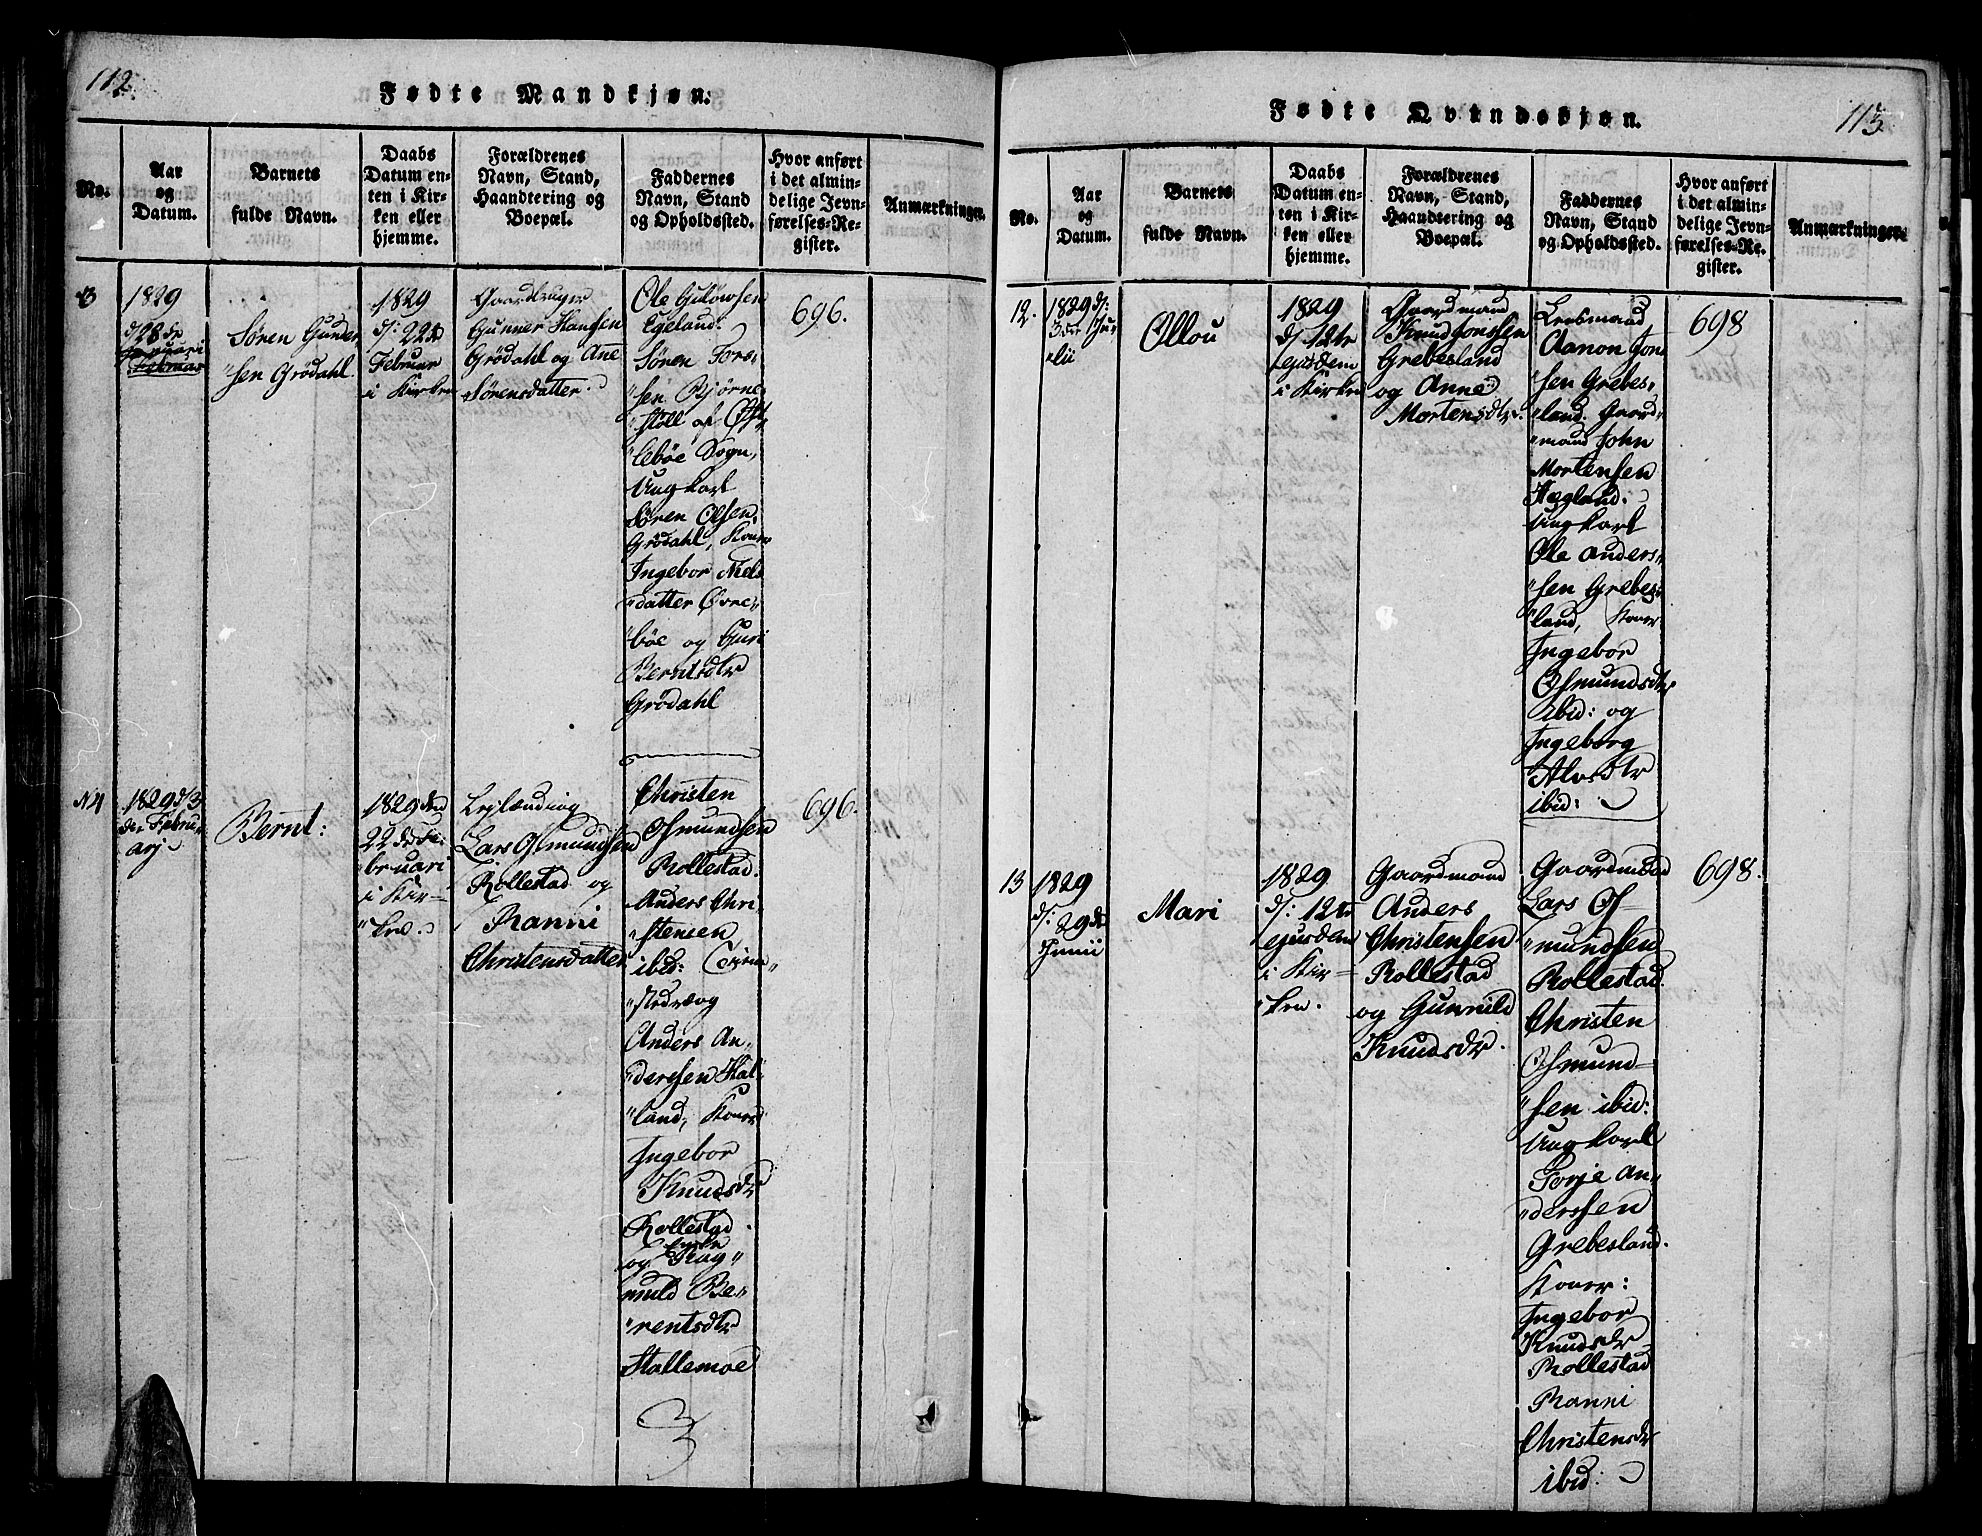 112.
Fødte Mandkjøn.
No.
Aar
og
Datum.
Barnets
fulde Navn.
Daabs
Datum en-
ten i Kir-
ken eller
hjemme.
Forældrenes
Navn, Stand,
Haandtering og
Boepæl.
Faddernes
Navn, Stand
og Opholdssted.
Hvor anført
i det almin-
delige Jevn-
førelses-Re-
gister.
Anmærkninger.
3
1829
d 28de
Januari
Februar
Søren Gunder
"sen Grödahl.
1829
d: 22de
Februar
i Kirken
Gaardbruger
Gunner Hansen
Grödahl og Ane
Sörensdatter.
Ole Gulowsen
Egeland.
Sören Tors,
"sen Bjørne
"stöll af Øft
"leböe Sogn,
Ungkarl
Sören Olsen
Grödahl, Koner
Ingebor Niels
"datter Øvre,
"böe og Guri
Berntsdtr
Grödahl
696.
N 4
1829 d 3
die Febru,
arj
Bernt:
1829 den
22de Fe,
"bruari
i Kir=
"ken.
Leilænding
Lars Osmundsen
Rollestad og
Ranni
Christensdatter
Christen
Osmundsen
Rollestad.
Anders Chri,
"stensen
ibid:
Anders An,
"dersen Hal,
"land, Koner
Ingebor
Knudsdtr
Rollestad
og Rag"
nuld Be,
"rentsdtr
Stallemoe
696.
115
Fødte Qvindekjøn.
No.
Aar
og
Datum.
Barnets
fulde Navn.
Daabs
Datum en-
ten i Kir-
ken eller
hjemme.
Forældrenes
Navn, Stand,
Haandtering og
Boepæl.
Faddernes
Navn, Stand
og Opholdssted.
Hvor anført
i det almin-
delige Jevn-
førelses-Re-
gister.
Anmærkninger.
12.
1829 d:
3die Ju,
"lii
Ollou
1829
d: 12te
ejusdem
i Kirken
Gaardmand
Knud Jonssen
Grebesland
og Anne
Mortensdtr.
Lensmand
Aanon Jon
"sen Grebes,
"land. Gaard,
"mand John
Mortensen
Hægland.
Ungkarl
Ole Anders,
"sen Grebes,
"land, Koner
Ingebor
Osmundsdtr
ibid: og
Ingeborg
Alvsdtr
ibid:
698
13
1829
d: 29de
Junii
Mari
1829
d: 12te
ejusdem
i Kir=
"ken.
Gaardmand
Anders
Christensen
Rollestad
og Gunnild
Knudsdr.
Gaardmand
Lars Os
"mundsen
Rollestad.
Christen
Osmund=
"sen ibid:
Ungkarl
Torje An,
"dersen
Grebesland.
Koner:
Ingebor
Knudsdr
Rollestad
Ranni
Christensdr
ibid:
698.